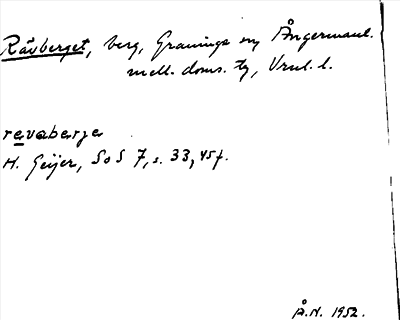 Rävberget, berg, Graninge sn Ångermanl.
mell. doms. tg, Vrnl. l.
revaberje
H. Geijer, SoS 7, s. 33, 45 f.
Å.N. 1952.